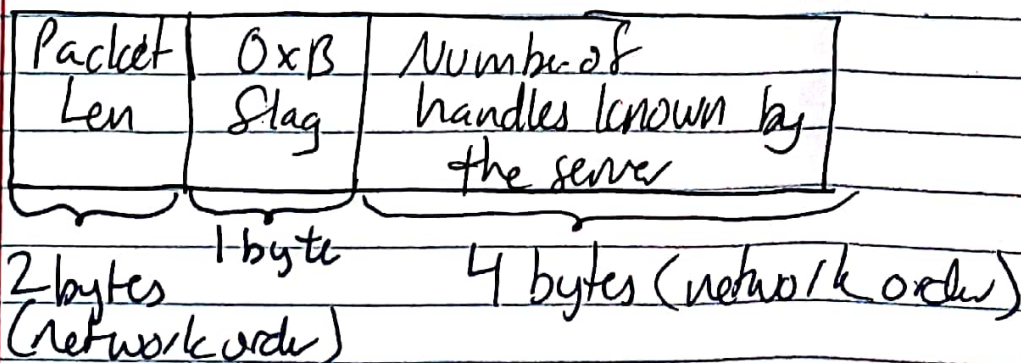 Packet
Len
0xB
flag
Number of
handles known by
the server
2 bytes
(network order)
1 byte
4 bytes (network order)